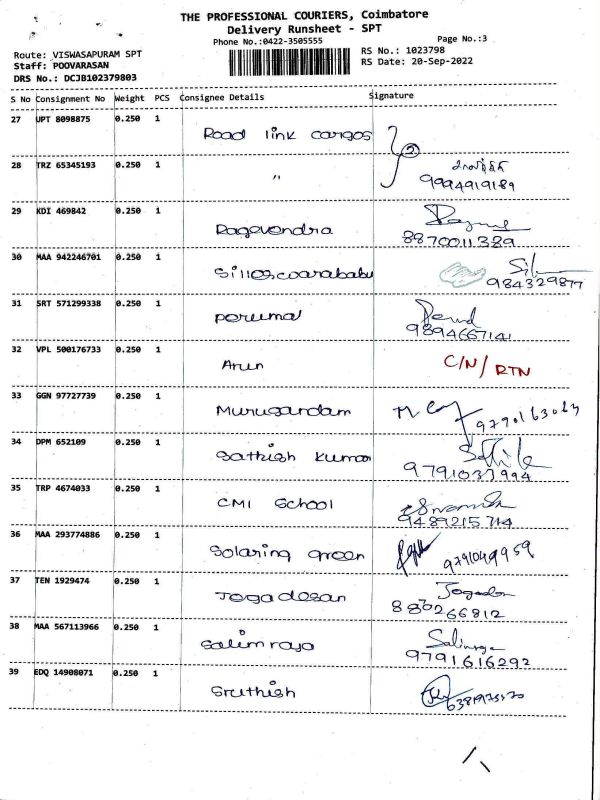 THE PROFESSIONAL COURIERS, Coimbatore
Delivery Runsheet - SPT
Phone No.:0422-3505555
Page No.:3
Route: VISWASAPURAM SPT
RS No.: 1023798
Staff: POOVARASAN
RS Date: 20-Sep-2022
DRS No.: DCJB102379803
S No Consignment No Weight PCS Consignee Details Signature
27 UPT 8098875 0.250 1 Road link cargos
28 TRZ 65345193 0.250 1 "
9994919189
29 KDI 469842 0.250 1 Ragavendra
8870011389
30 MAA 942246701 0.250 1
984329877
31 SRT 571299338 0.250 1 perumal
9894667141
32 VPL 500176733 0.250 1 Arun C/N/ RTN
33 GGN 97727739 0.250 1 Murugandam
34 DPM 652109 0.250 1 Sathish kumar
9791033994
35 TRP 4674033 0.250 1 CMI School
9489215714
36 MAA 293774886 0.250 1 Solaring green
9791049959
37 TEN 1929474 0.250 1 Jogadesan
38 MAA 567113966 0.250 1 Salimraja
9791616292
39 EDQ 14908071 0.250 1 Sruthish